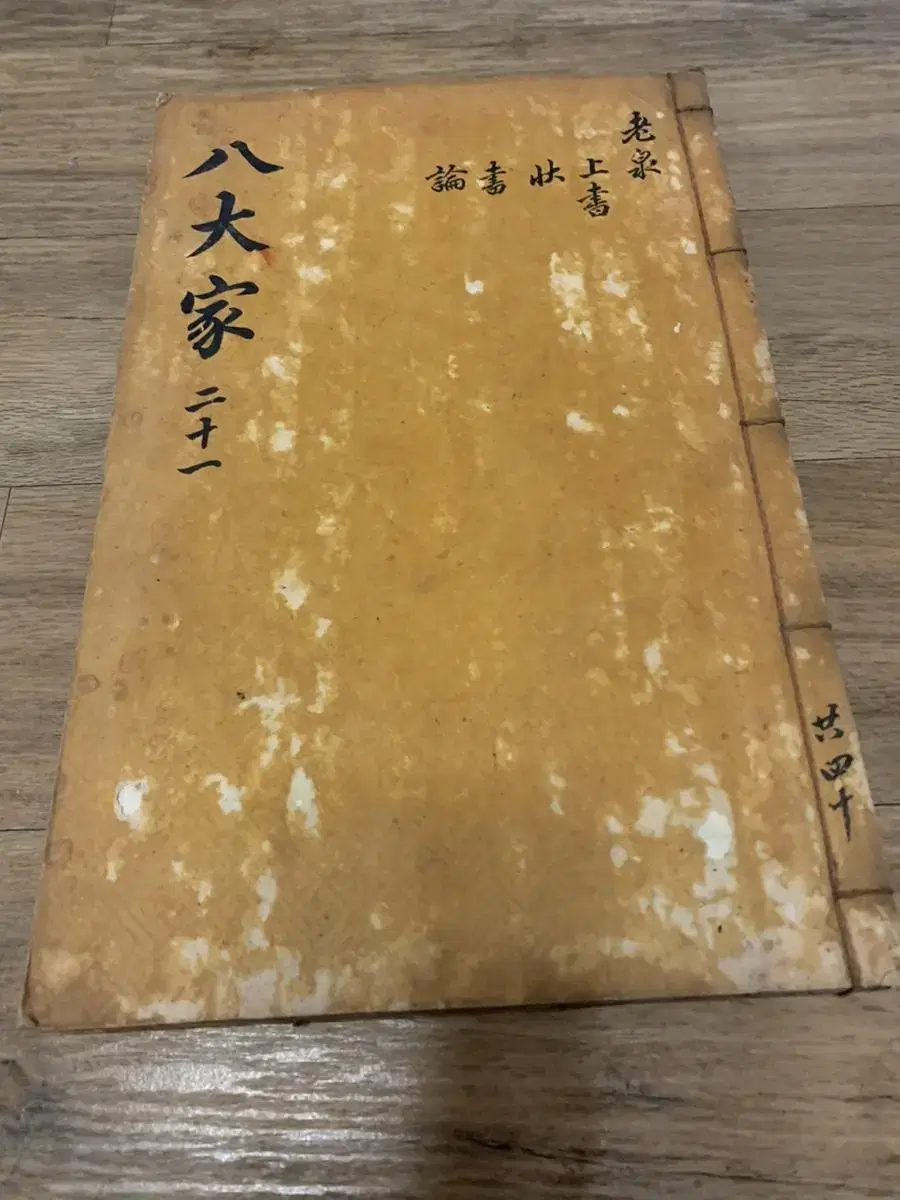 八大家 二十一
老泉
上書
狀
書
論
共四十